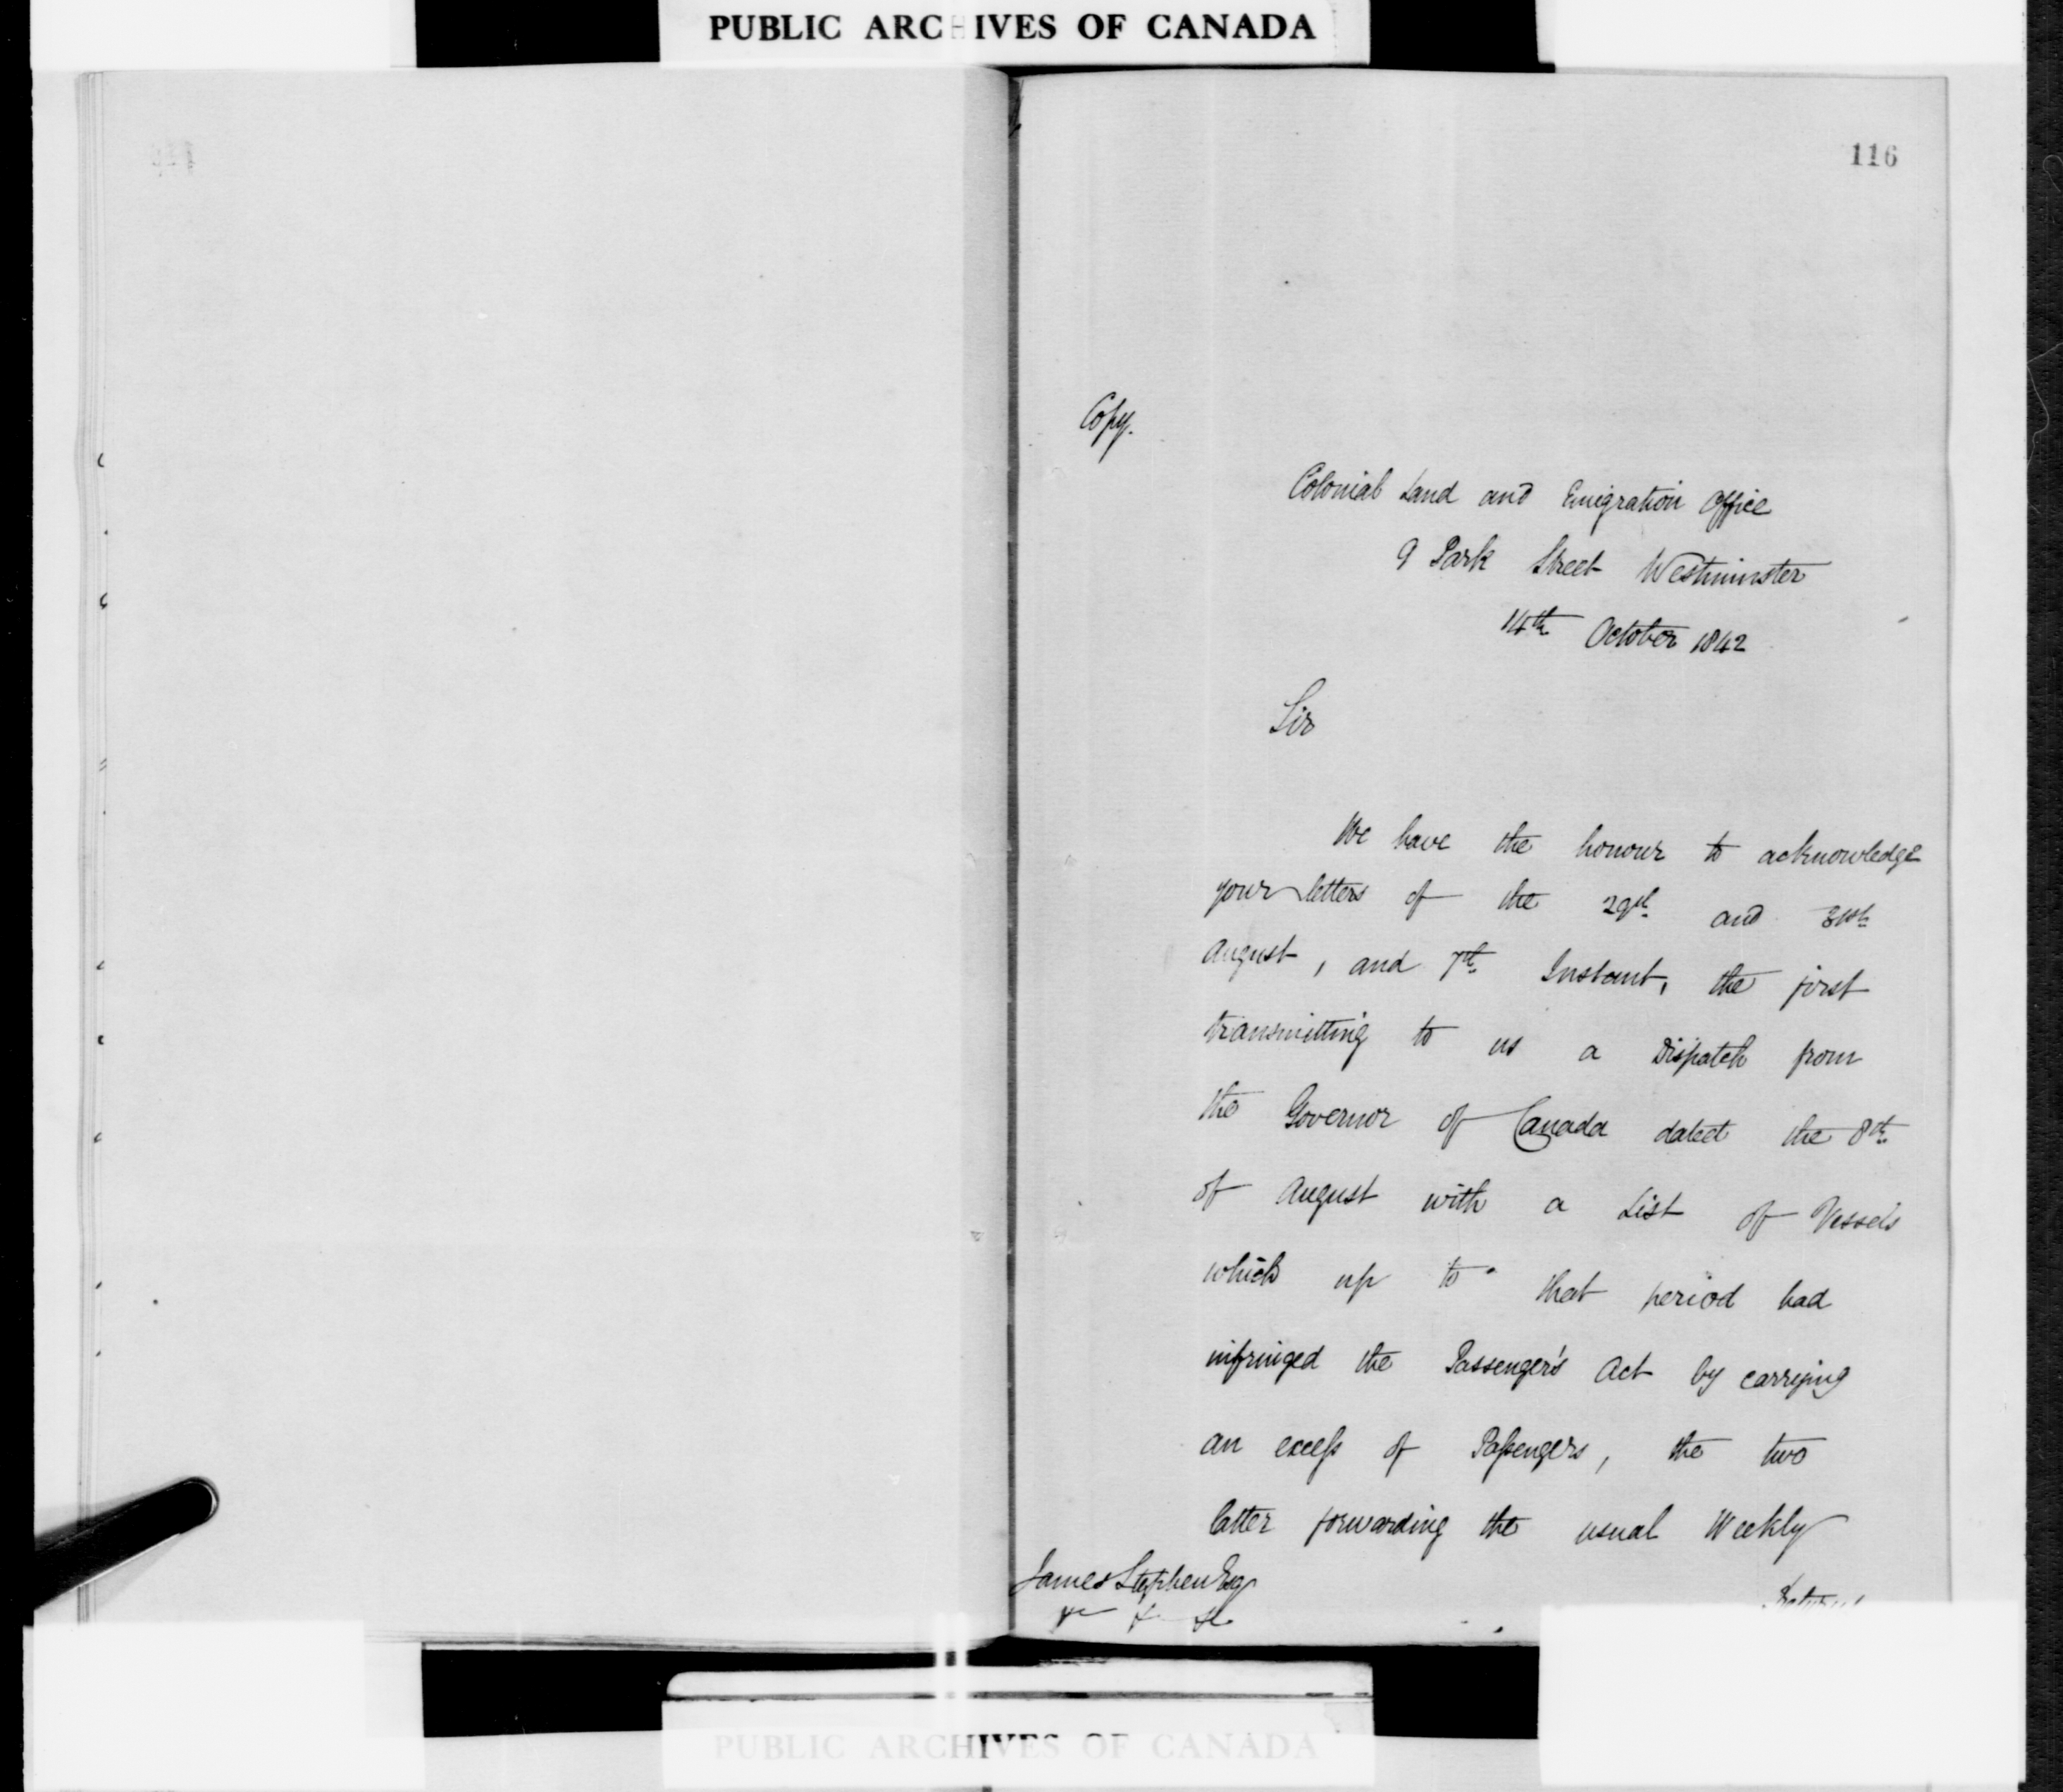 PUBLIC ARCHIVES OF CANADA
116
Copy.
Colonial Land and Emigration Office
9 Park Street Westminster
14th October 1842
Sir
We have the honour to acknowledge
your letters of the 29th and 31st
August, and 7th Instant, the first
transmitting to us a Dispatch from
the Governor of Canada dated the 8th
of August with a List of Vessels
which up to that period had
infringed the Passenger's Act by carrying
an excess of Passengers, the two
latter forwarding the usual Weekly
James Stephen Esq
PUBLIC ARCHIVES OF CANADA